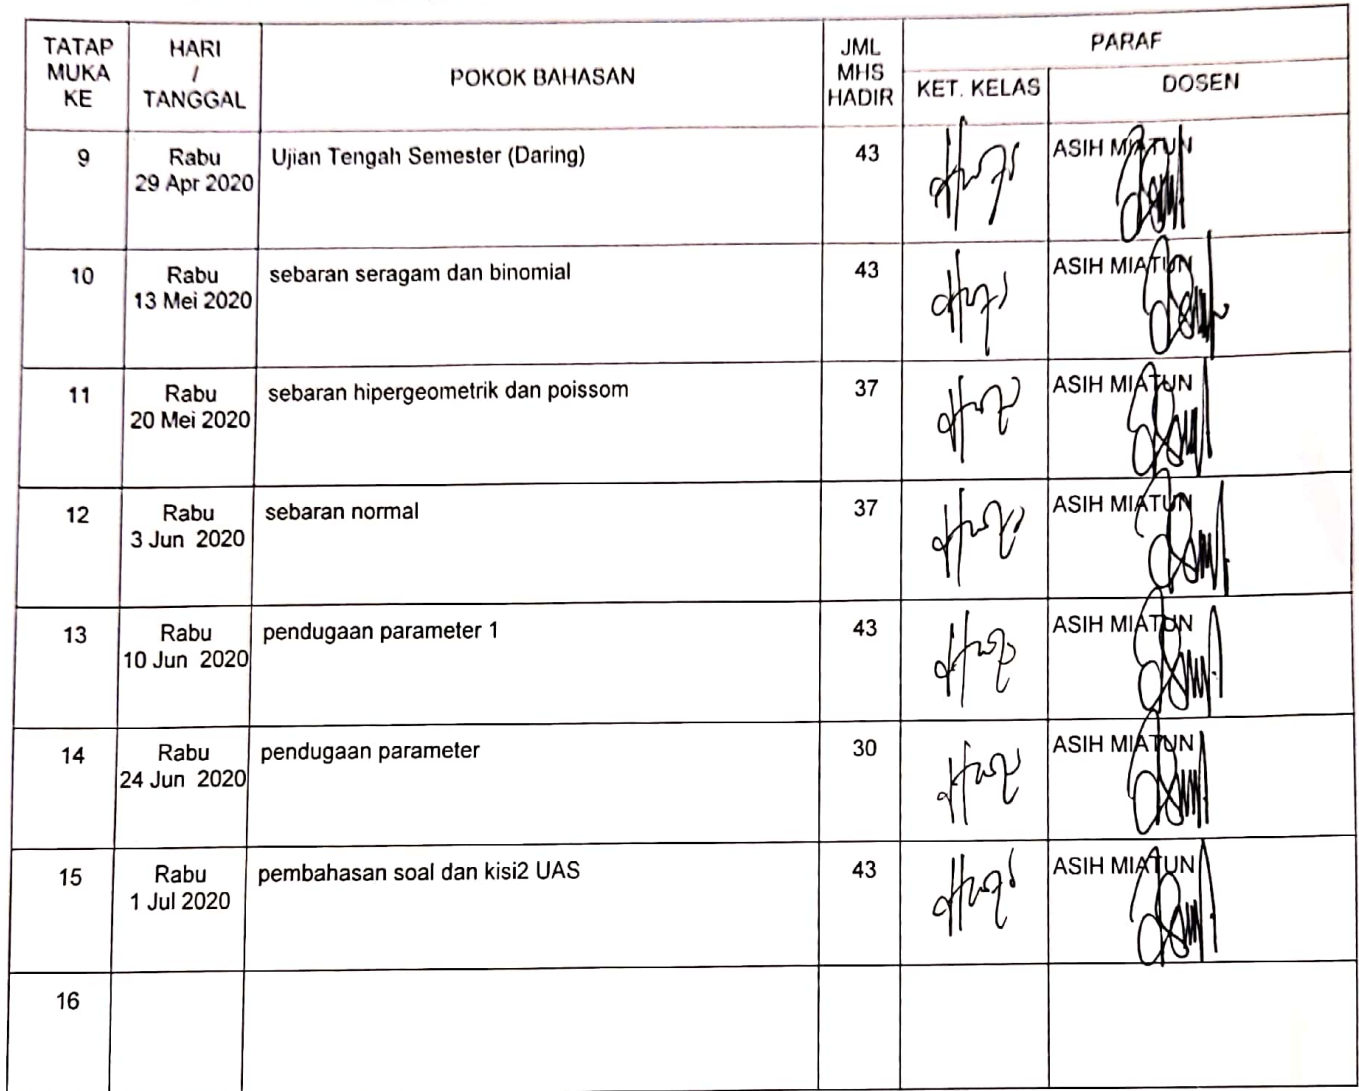 TATAP
MUKA
KE
HARI
/
TANGGAL
POKOK BAHASAN
JML
MHS
HADIR
PARAF
KET. KELAS
DOSEN
9
Rabu
29 Apr 2020
Ujian Tengah Semester (Daring)
43
ASIH MIATUN
10
Rabu
13 Mei 2020
sebaran seragam dan binomial
43
ASIH MIATUN
11
Rabu
20 Mei 2020
sebaran hipergeometrik dan poissom
37
ASIH MIATUN
12
Rabu
3 Jun 2020
sebaran normal
37
ASIH MIATUN
13
Rabu
10 Jun 2020
pendugaan parameter 1
43
ASIH MIATUN
14
Rabu
24 Jun 2020
pendugaan parameter
30
ASIH MIATUN
15
Rabu
1 Jul 2020
pembahasan soal dan kisi2 UAS
43
ASIH MIATUN
16